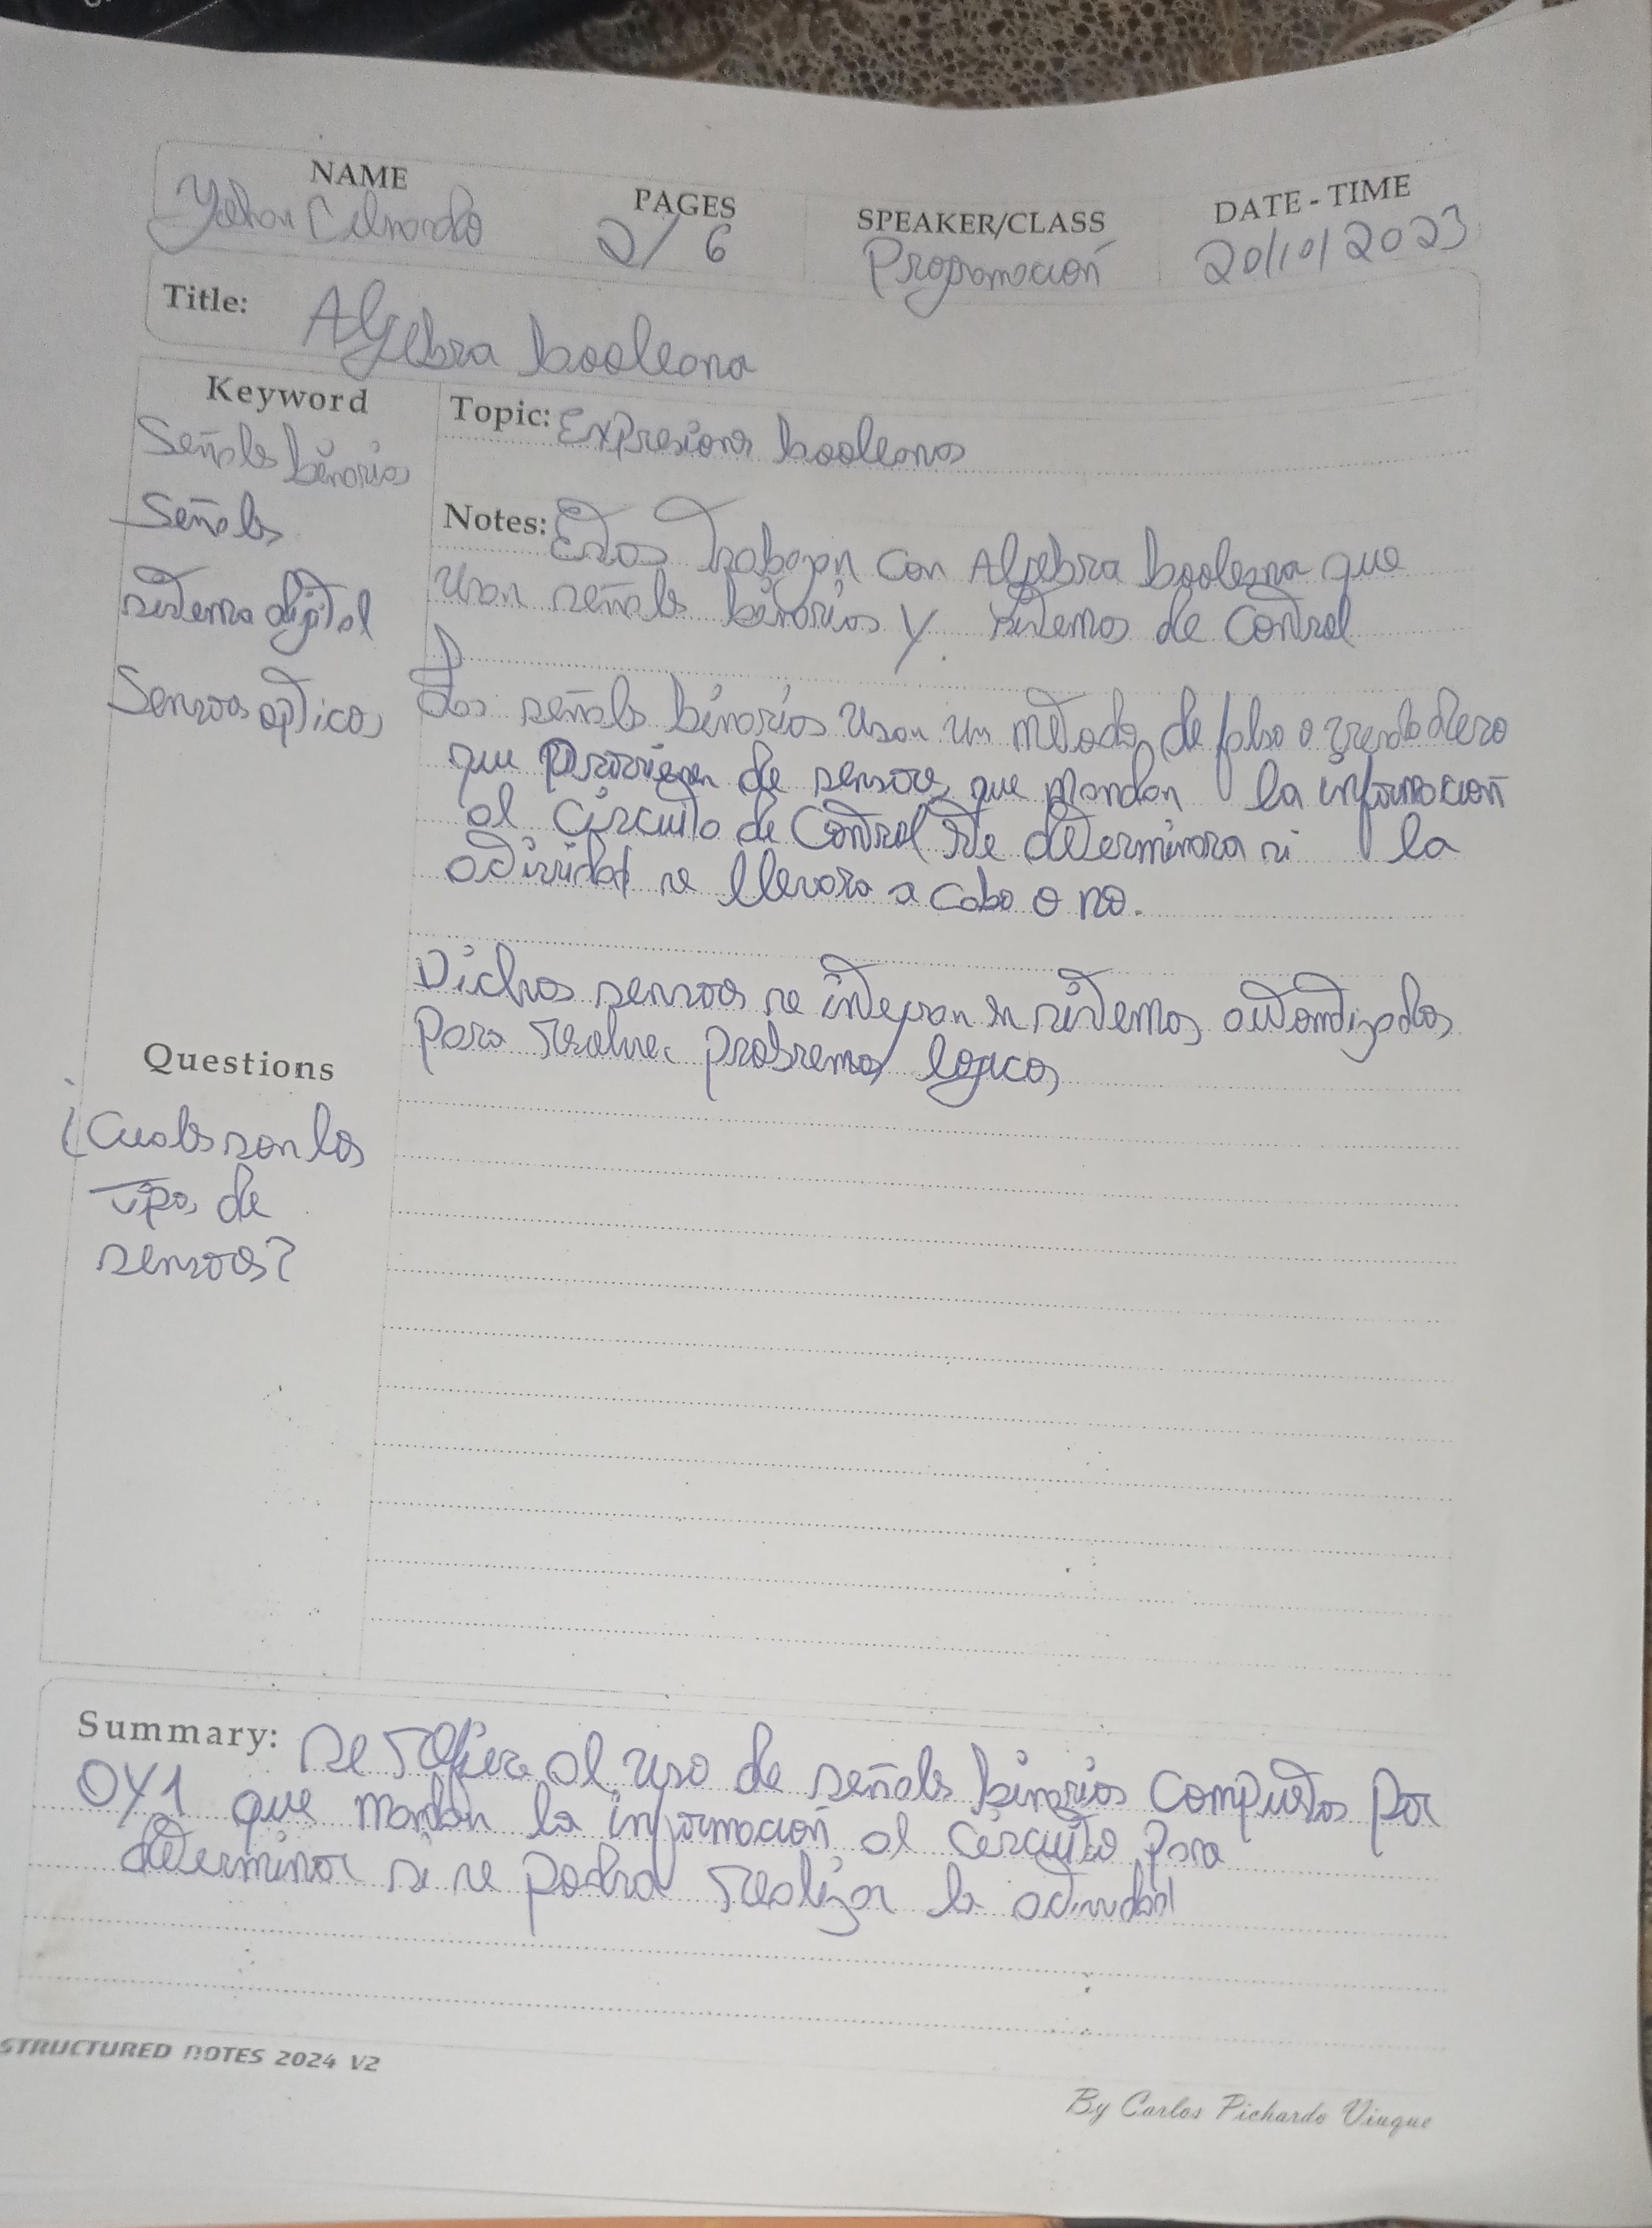 NAME
PAGES
SPEAKER/CLASS
DATE - TIME
2/6
Programación
20/10/2023
Title: Algebra booleana
Keyword
Señales binarias
Señales
sistema digital
Sensores opticos
Topic: Expresiones booleanas
Notes: Estos trabajan con Algebra booleana que
usan señales binarias y sistemas de control
Las señales binarias usan un metodo de falso o verdadero
que provienen de sensores que mandan la información
al circuito de control este determinara si la
actividad se llevara a cabo o no.
Dichos sensores se integran en sistemas automtizados
para resolver probremas logicos
Questions
¿Cuales son los
tipos de
sensores?
Summary: se refiere al uso de señales binarias compuestas por
0 y 1 que mandan la información al circuito para
determinar si se podra realizar la actividad
STRUCTURED NOTES 2024 V2
By Carlos Pichardo Viuque